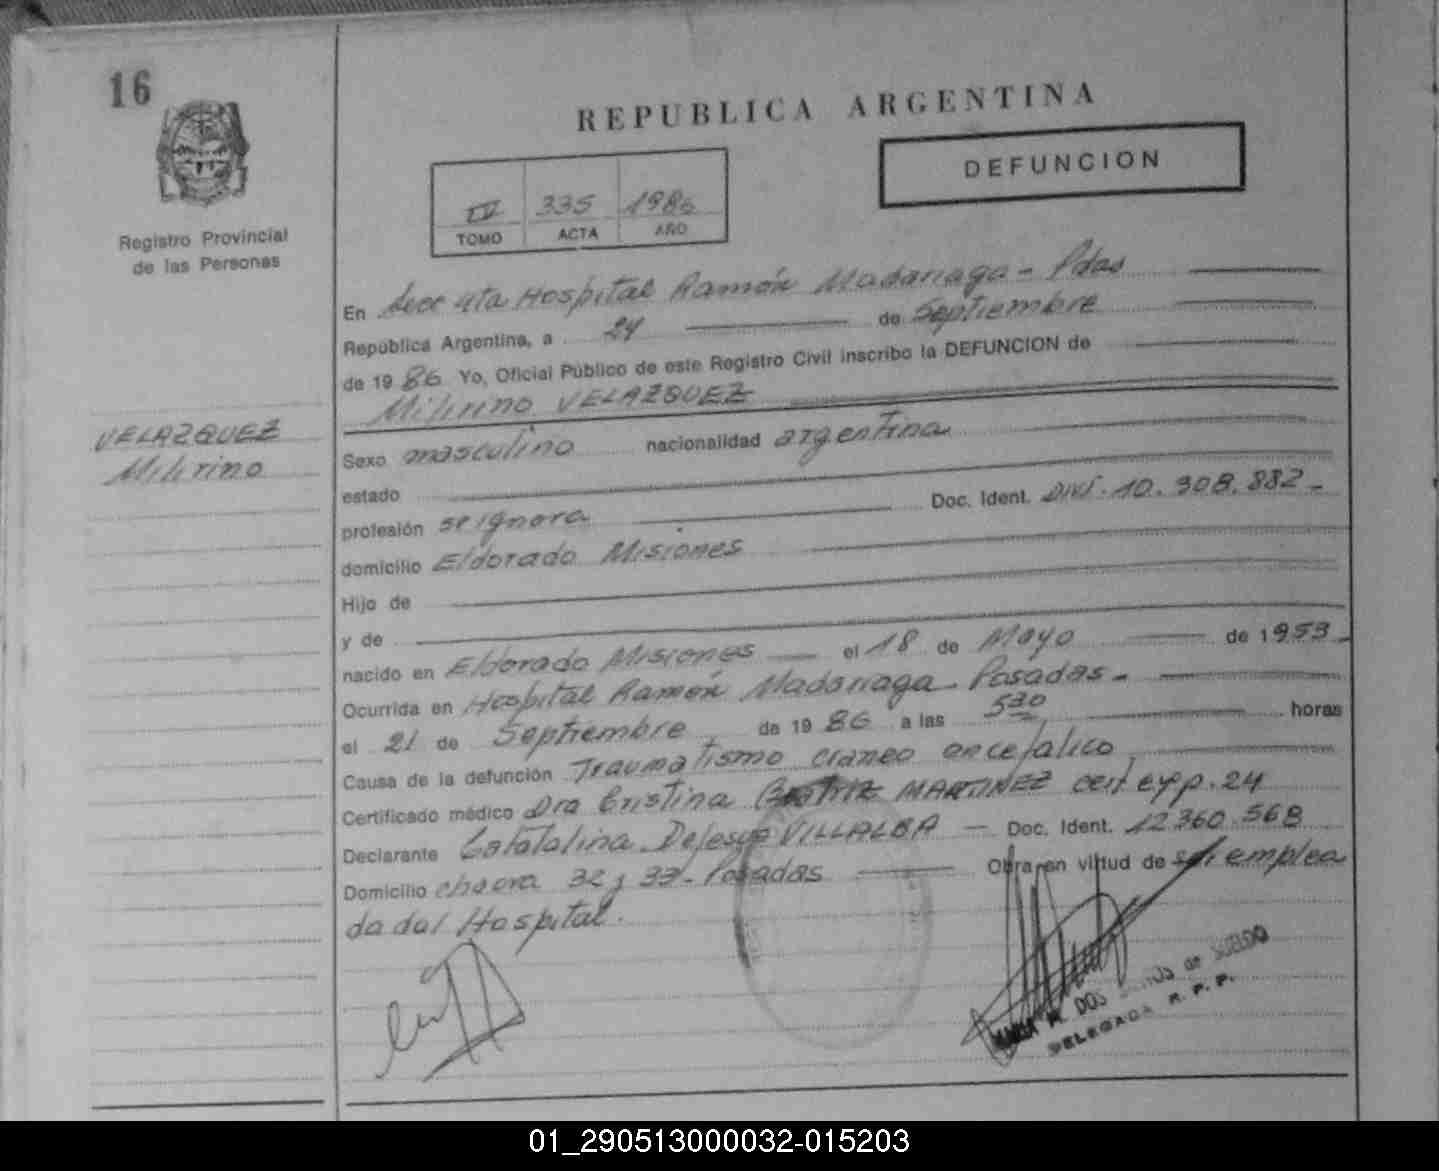 16
REPUBLICA ARGENTINA
DEFUNCION
IV 335 1986
TOMO ACTA AÑO
Registro Provincial
de las Personas
En Secc 4ta Hospital Ramón Madariaga - Pdas
República Argentina, a 24 de Septiembre
de 1986 Yo, Oficial Público de este Registro Civil inscribo la DEFUNCION de
Milirino VELAZQUEZ
VELAZQUEZ
Milirino
Sexo masculino nacionalidad argentina
estado
profesión se ignora Doc. Ident. DNI. 10.308.882-
domicilio Eldorado Misiones
Hijo de
y de
nacido en Eldorado Misiones el 18 de Mayo de 1953
Ocurrida en Hospital Ramón Madariaga - Posadas -
el 21 de Septiembre de 1986 a las 530 horas
Causa de la defunción Traumatismo craneo encefalico
Certificado médico Dra Cristina Beatriz MARTINEZ cert exp. 24
Declarante Catalina Dejesus VILLALBA - Doc. Ident. 12 360 568
Domicilio chacra 32 y 33 - Posadas Obra en virtud de ser emplea
da del Hospital.
MARIA DOS de SUELDO
DELEGADA R. P. P.
01_290513000032-015203